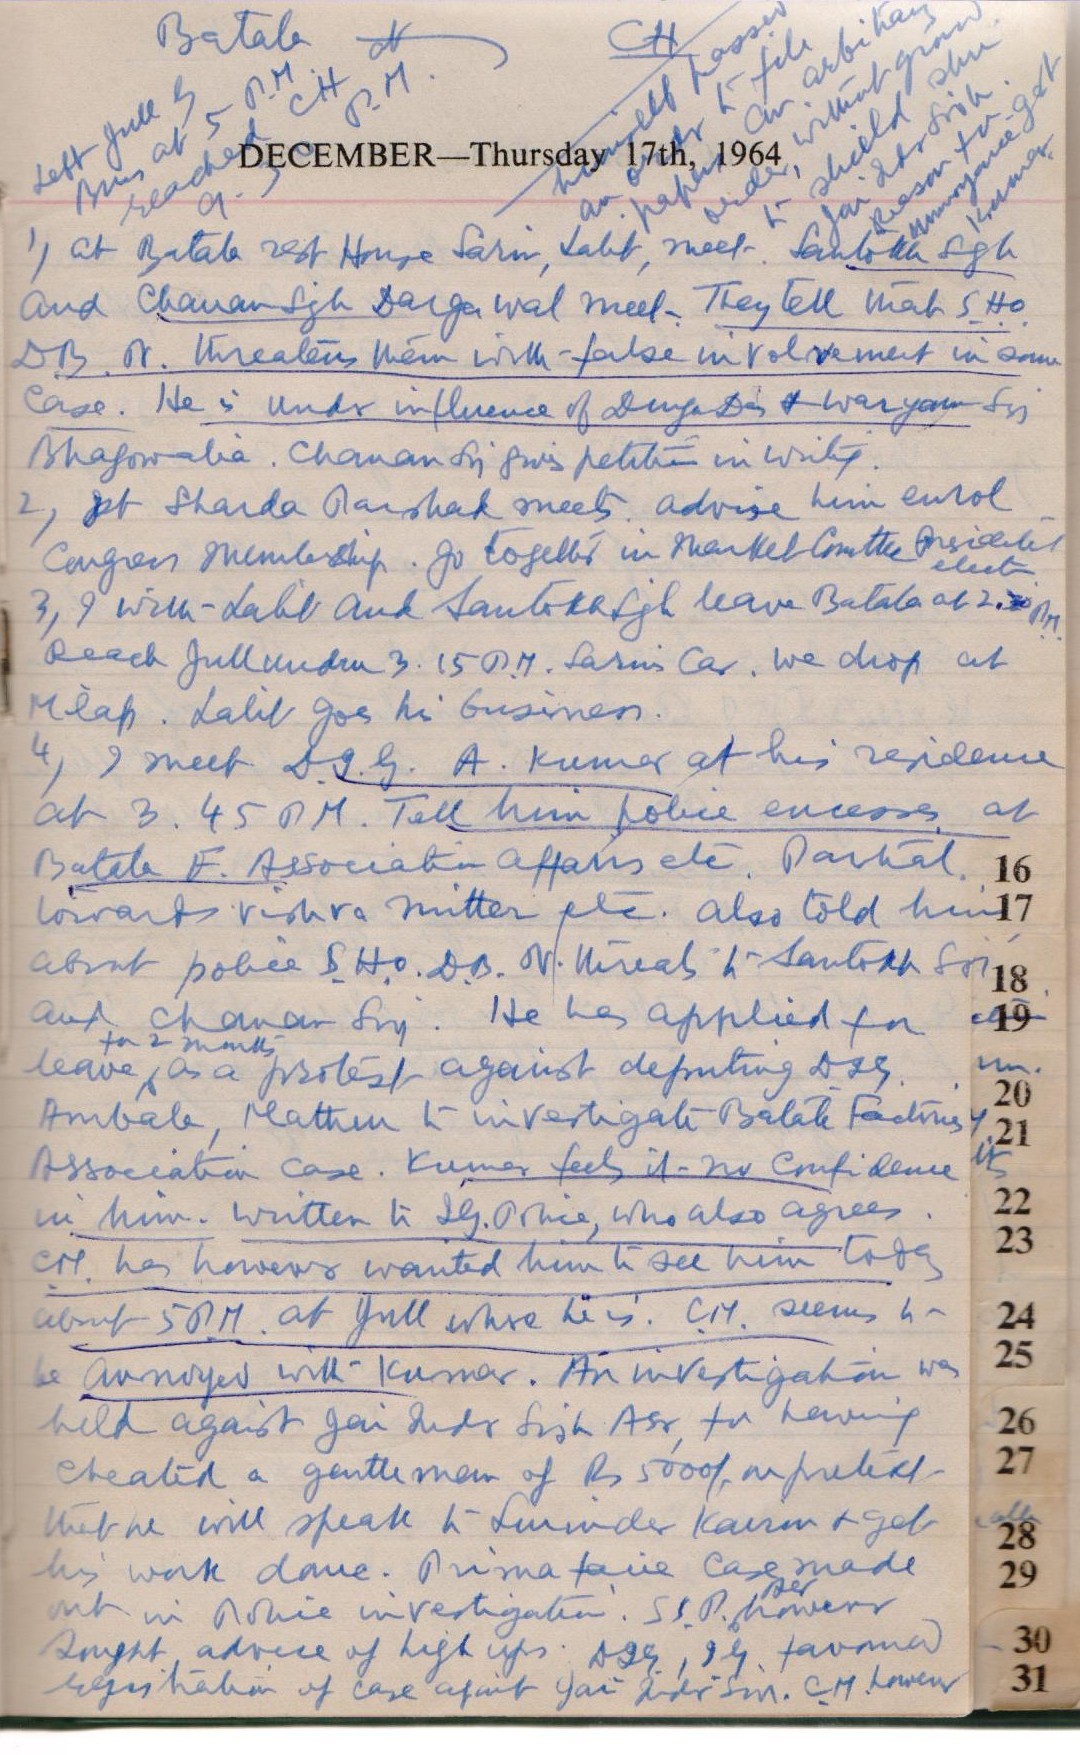 Batala
CH
Left Jull by
Bus at 5 P.M.
reached CH
9. P.M.
himself passed
an order to file
papers. An arbitrary
order, without ground
to shield shri
Jai Inder Sinh.
Reason to
annoyance-gst
Kumar.
DECEMBER—Thursday 17th, 1964
1, at Batala rest House Sarin, Lalit, meet. Santokh Sgh
and Chanan Sgh Dargawal meet. They tell that S.H.O.
D.B. N. threatens them with false involvement in some
case. He is under influence of Durga Das & Waryam Sij
Bhagowalia. Chanan Sij gives petition in writing.
2, Pt Sharda Parshad meets. advise him enrol
Congress Membership. Go together in Market Comttee President
election
3, I with Lalit and Santokh Sgh leave Batala at 2.30 P.M.
Reach Jullundur 3.15 P.M. Sarin's Car. We drop at
Milap. Lalit goes his business.
4, I meet D.I.G. A. Kumar at his residence
at 3.45 P.M. Tell him police excesses at
Batala F. Association affairs etc. Partial
towards Vishva Mitter etc. also told him
about police S.H.O. D.B. N. threats to Santokh Sij
and Chanan Sij. He has applied for
for 2 months
leave, as a protest against deputing DIG
Ambala, Mathur to investigate Batala Factories
Association case. Kumar feels it no confidence
in him. Written to I.G. Police, who also agrees.
C.M. has however wanted him to see him today
about 5 P.M. at Jull where he is. C.M. seems to
be annoyed with Kumar. An investigation was
held against Jai Inder Sinh Asr, for having
cheated a gentleman of Rs 5000/- on pretext
that he will speak to Surinder Kairon & get
his work done. Prima facie case made
out in Police investigation. S.S.P. however
sought advice of high ups. DIG, IG favoured
registration of case against Jai Inder Sin. C.M. however
16
17
18
19
20
21
22
23
24
25
26
27
28
29
30
31